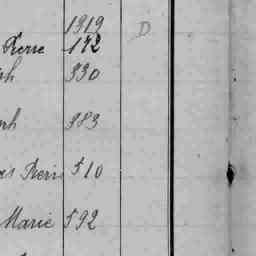 1919 D
Pierre 172
ph 330
ph 383
as Pierre 510
Marie 592